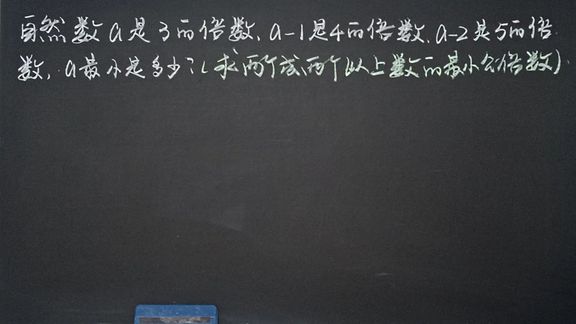 自然数a是3的倍数,a-1是4的倍数,a-2是5的倍
数,a最小是多少?(求两个或两个以上数的最小公倍数)